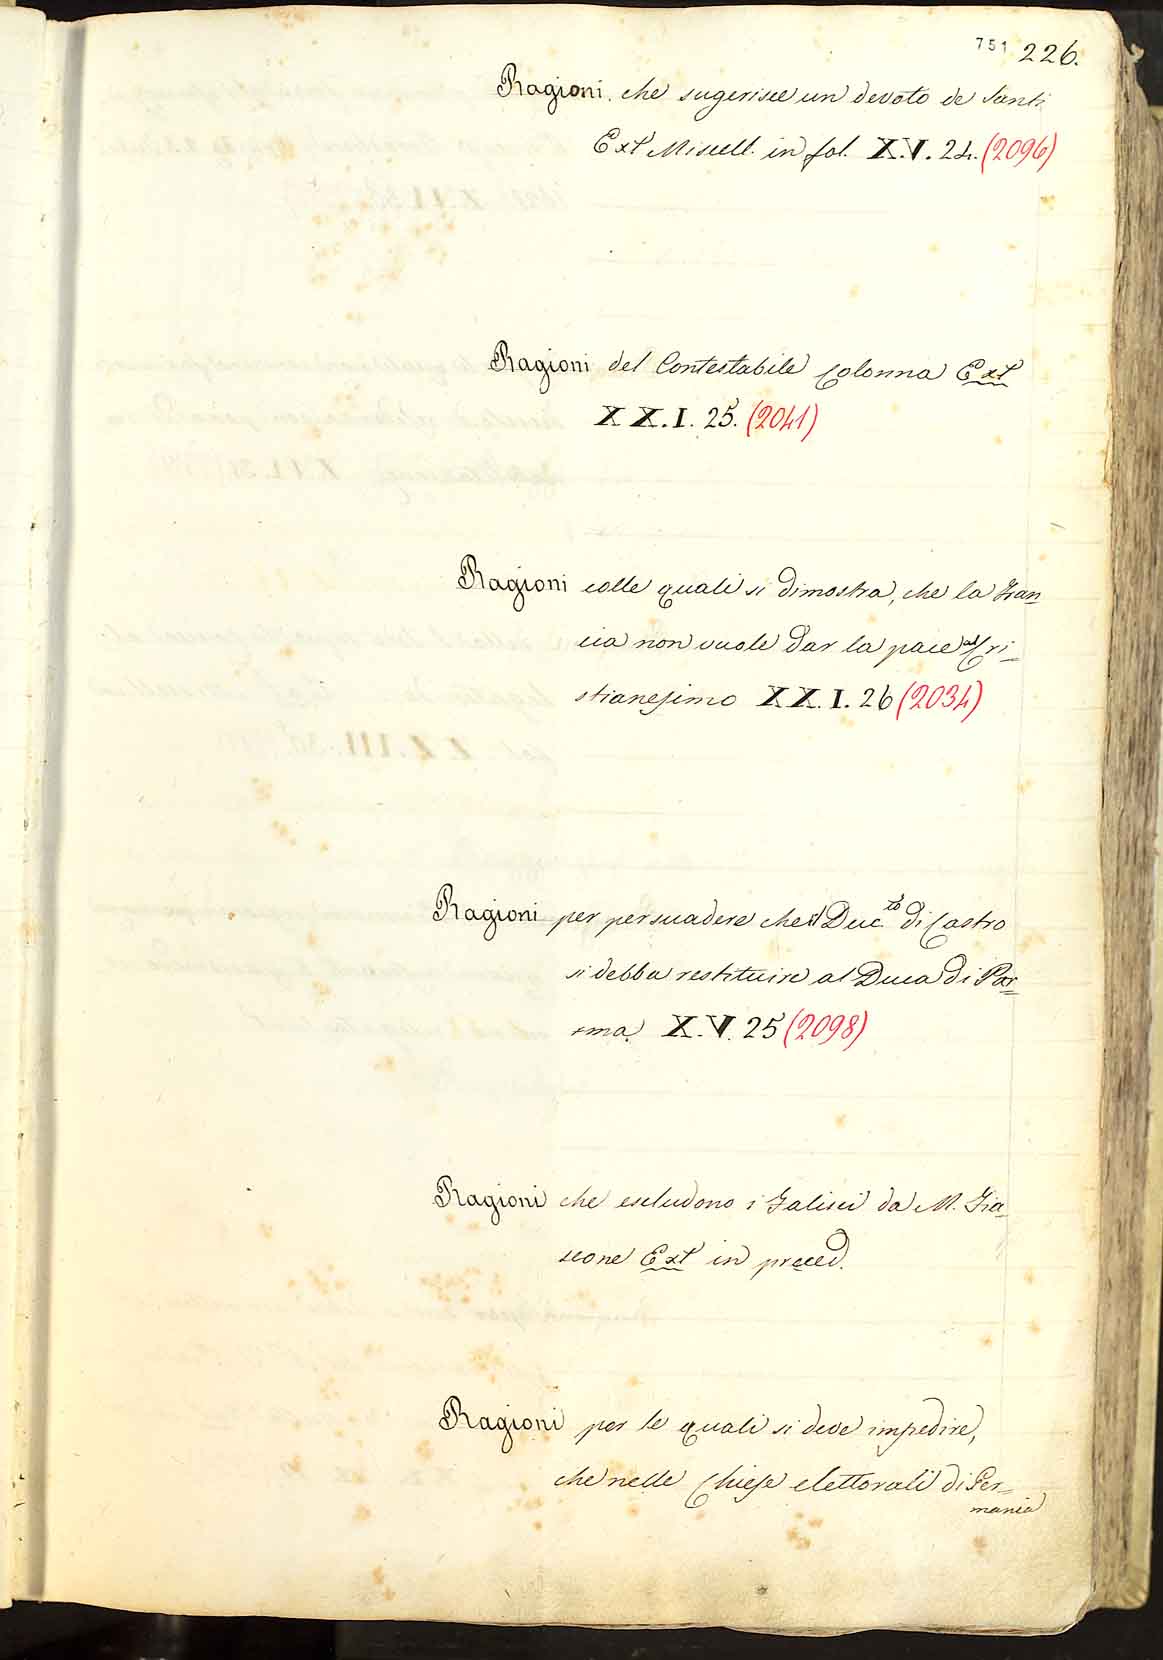 751 226.
Ragioni. che sugerisce un devoto de Santi
Ext Miscell. in fol. X.V. 24. (2096)
Ragioni del Contestabile Colonna Ext
XX.I. 25. (2041)
Ragioni colle quali si dimostra, che la Fran=
cia non vuole dar la pace al Cri=
stianesimo XX.I. 26 (2034)
Ragioni per persuadere che il Duc.to di Castro
si debba restituire al Duca di Par=
ma. X.V. 25 (2098)
Ragioni che escludono i Falisci da M. Fia=
scone Ext in preced.
Ragioni per le quali si deve impedire,
che nelle Chiese elettorali di Ger=
mania